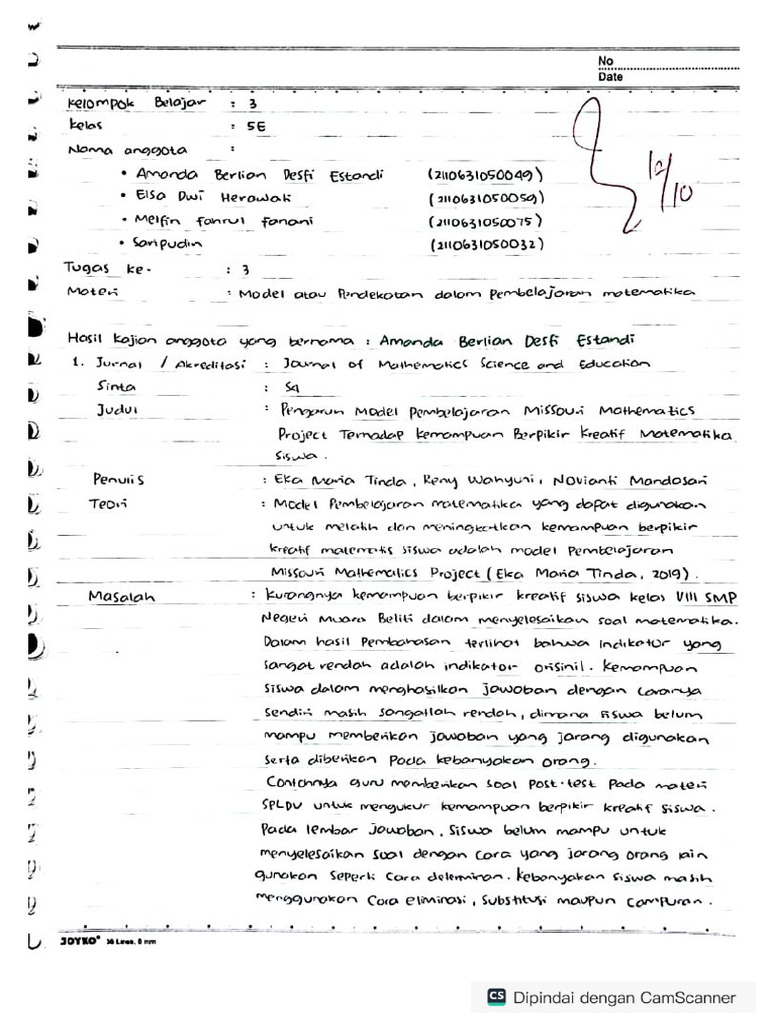 No
Date
Kelompok Belajar : 3
Kelas : 5E
Nama anggota :
• Amanda Berlian Desfi Estandi (2110631050049)
• Elsa Dwi Herawati (2110631050059)
• Melfin fahrul fanani (2110631050075)
• Saripudin (2110631050032)
Tugas ke- : 3
Materi : Model atau Pendekatan dalam Pembelajaran matematika
Hasil Kajian anggota yang bernama : Amanda Berlian Desfi Estandi
1. Jurnal / Akreditasi : Journal of Mathematics Science and Education
Sinta : S4
Judul : Pengaruh Model Pembelajaran Missouri Mathematics
Project Terhadap Kemampuan Berpikir Kreatif Matematika
Siswa.
Penulis : Eka Maria Tinda, Reny Wahyuni, Novianti Mandasari
Teori : Model Pembelajaran matematika yang dapat digunakan
untuk melatih dan meningkatkan kemampuan berpikir
kreatif matematis siswa adalah model Pembelajaran
Missouri Mathematics Project (Eka Maria Tinda, 2019).
Masalah : Kurangnya kemampuan berpikir kreatif siswa kelas VIII SMP
Negeri Muara Beliti dalam menyelesaikan soal matematika.
Dalam hasil Pembahasan terlihat bahwa indikator yang
sangat rendah adalah indikator orisinil. Kemampuan
siswa dalam menghasilkan jawaban dengan caranya
sendiri masih sangatlah rendah, dimana siswa belum
mampu memberikan jawaban yang jarang digunakan
serta diberikan Pada kebanyakan orang.
Contohnya guru memberikan soal Post-test Pada materi
SPLDV untuk mengukur kemampuan berpikir kreatif siswa.
Pada lembar jawaban, siswa belum mampu untuk
menyelesaikan soal dengan cara yang jarang orang lain
gunakan seperti cara determinan. Kebanyakan siswa masih
menggunakan cara eliminasi, substitusi maupun campuran.
JOYKO® 36 Lines, 8 mm
CS Dipindai dengan CamScanner